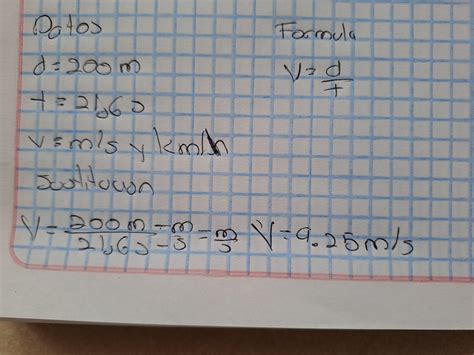 Datos Formula
d=200m V=d/t
t=21,6s
v=m/s y km/h
Sustitucion
V=200m-m/21,6s-s=m/s V=9.25m/s